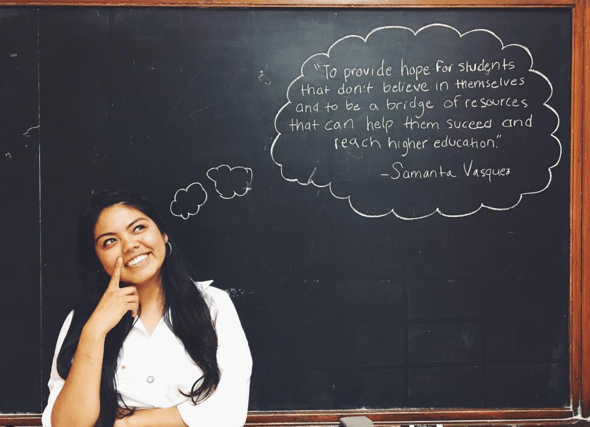 "To provide hope for students
that don't believe in themselves
and to be a bridge of resources
that can help them suceed and
reach higher education."
-Samanta Vasquez